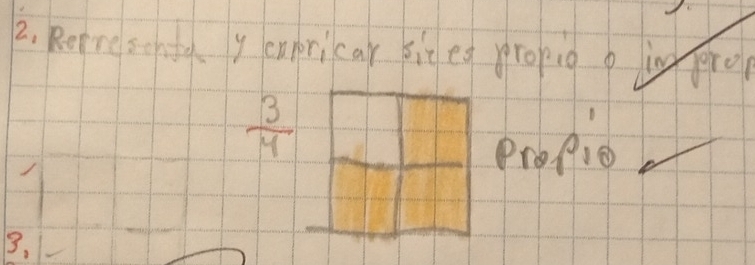 2. Representa y expricar si es propio o improp
3/4 propio
3.